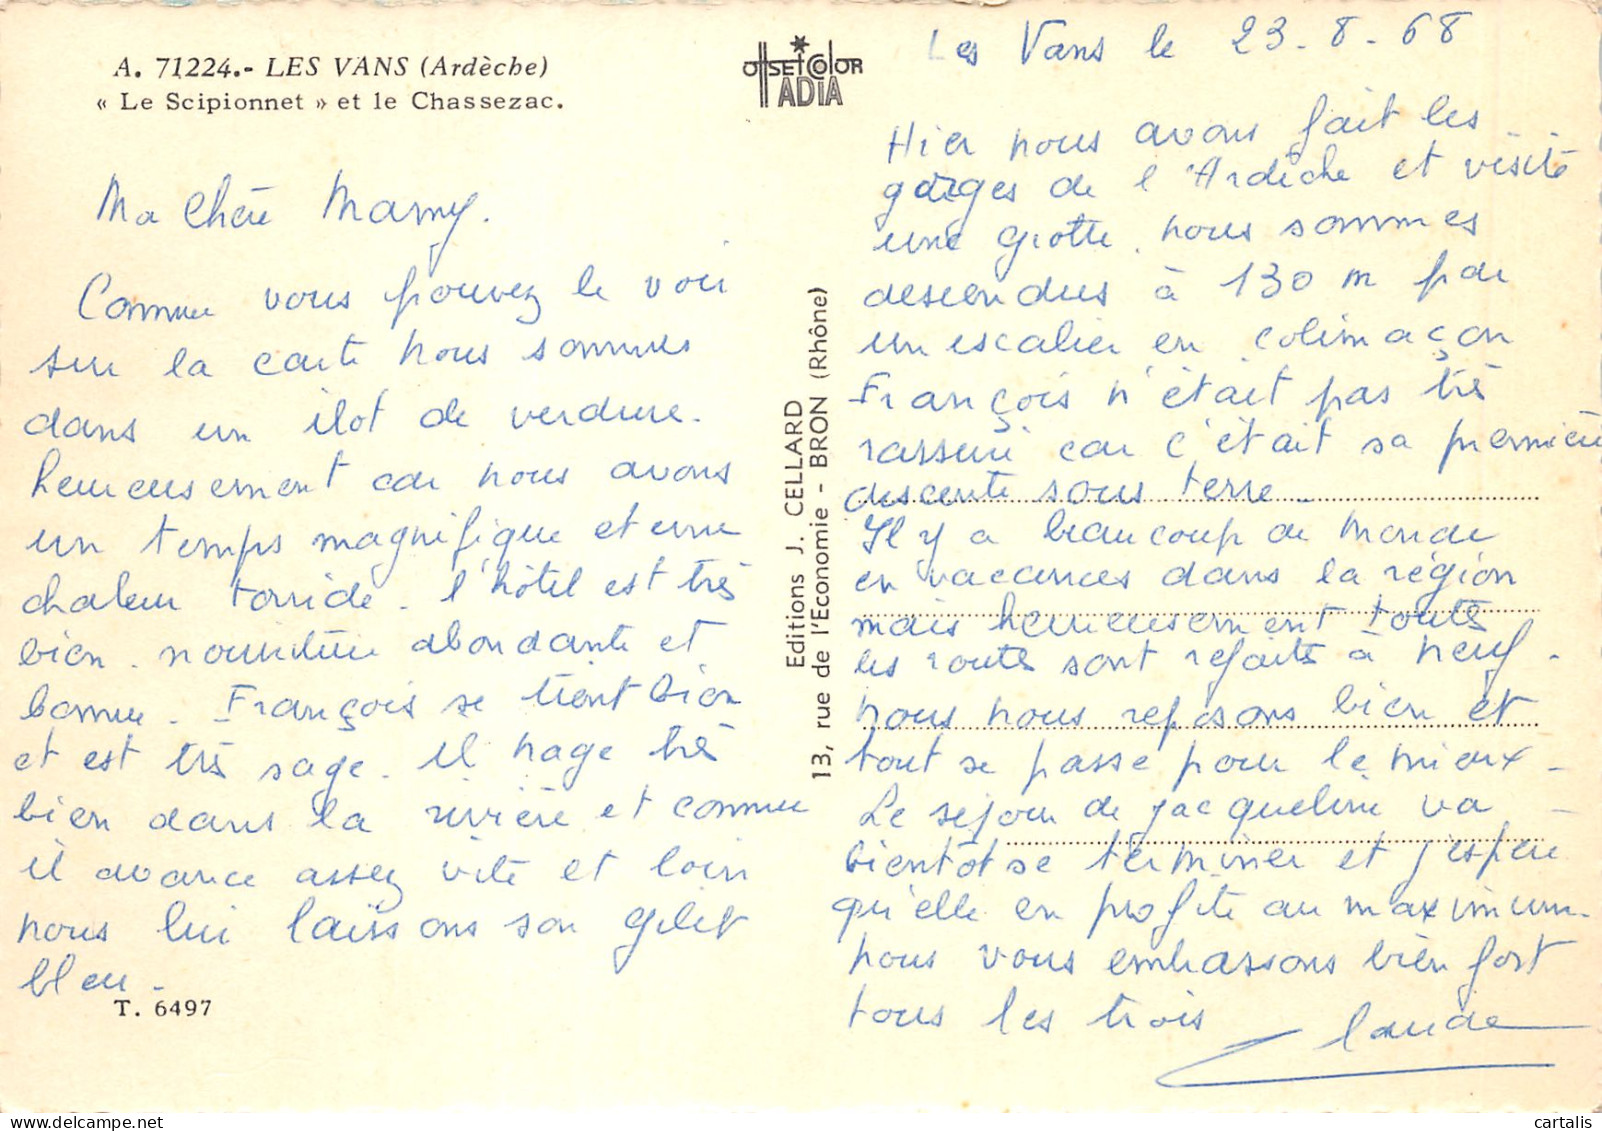 A. 71224.- LES VANS (Ardèche)
« Le Scipionnet » et le Chassezac.
Ma Chère Mamy.
Comme vous pouvez le voir
sur la carte nous sommes
dans un îlot de verdure.
heureusement car nous avons
un temps magnifique et une
chaleur torride. l'hôtel est très
bien. nourriture abondante et
bonne. François se tient bien
et est très sage. il nage très
bien dans la rivière et comme
il avance assez vite et loin
nous lui laissons son gilet
bleu.
T. 6497
OFFSET COLOR
ADIA
Editions J. CELLARD
13, rue de l'Economie - BRON (Rhône)
Les Vans le 23.8.68
Hier nous avons fait les
gorges de l'Ardèche et visité
une grotte. nous sommes
descendus à 130 m par
un escalier en colimaçon
François n'était pas très
rassuré car c'était sa première
descente sous terre.
Il y a beaucoup de monde
en vacances dans la région
mais heureusement toutes
les routes sont refaites à neuf.
nous nous reposons bien et
tout se passe pour le mieux.
Le séjour de Jacqueline va
bientôt se terminer et j'espère
qu'elle en profite au maximum.
nous vous embrassons bien fort
tous les trois Claude
cartalis